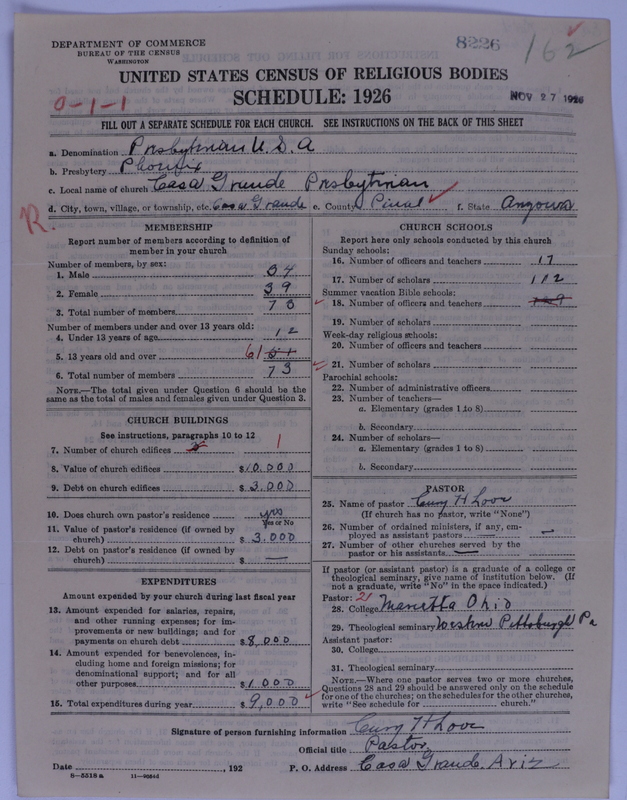 DEPARTMENT OF COMMERCE
BUREAU OF THE CENSUS
WASHINGTON
8226
162
UNITED STATES CENSUS OF RELIGIOUS BODIES
SCHEDULE: 1926
NOV 27 1926
0-1-1
FILL OUT A SEPARATE SCHEDULE FOR EACH CHURCH. SEE INSTRUCTIONS ON THE BACK OF THIS SHEET
a. Denomination Presbyterian U.S.A
b. Presbytery Phoenix
c. Local name of church Casa Grande Presbyterian
d. City, town, village, or township, etc. Casa Grande e. County Pinal f. State Arizona
R.
MEMBERSHIP
Report number of members according to definition of
member in your church
Number of members, by sex:
1. Male 34
2. Female 39
3. Total number of members 73
Number of members under and over 13 years old:
4. Under 13 years of age 12
5. 13 years old and over 61 51
6. Total number of members 73
NOTE.—The total given under Question 6 should be the
same as the total of males and females given under Question 3.
CHURCH BUILDINGS
See instructions, paragraphs 10 to 12
7. Number of church edifices 1
8. Value of church edifices $10.000
9. Debt on church edifices $3.000
10. Does church own pastor's residence yes
Yes or No
11. Value of pastor's residence (if owned by
church) $3.000
12. Debt on pastor's residence (if owned by
church) $ —
EXPENDITURES
Amount expended by your church during last fiscal year
13. Amount expended for salaries, repairs,
and other running expenses; for im-
provements or new buildings; and for
payments on church debt $8,000
14. Amount expended for benevolences, in-
cluding home and foreign missions; for
denominational support; and for all
other purposes $1000
15. Total expenditures during year $9,000
CHURCH SCHOOLS
Report here only schools conducted by this church
Sunday schools:
16. Number of officers and teachers 17
17. Number of scholars 112
Summer vacation Bible schools:
18. Number of officers and teachers
19. Number of scholars
Week-day religious schools:
20. Number of officers and teachers
21. Number of scholars
Parochial schools:
22. Number of administrative officers
23. Number of teachers—
a. Elementary (grades 1 to 8)
b. Secondary
24. Number of scholars—
a. Elementary (grades 1 to 8)
b. Secondary
PASTOR
25. Name of pastor H Love
(If church has no pastor, write "None")
26. Number of ordained ministers, if any, em-
ployed as assistant pastors —
27. Number of other churches served by the
pastor or his assistants —
If pastor (or assistant pastor) is a graduate of a college or
theological seminary, give name of institution below. (If
not a graduate, write "No" in the space indicated.)
Pastor: 21
28. College Marietta Ohio
29. Theological seminary Western Pittsburgh Pa
Assistant pastor:
30. College
31. Theological seminary
NOTE.—Where one pastor serves two or more churches,
Questions 28 and 29 should be answered only on the schedule
for one of the churches; on the schedules for the other churches,
write "See schedule for church."
Signature of person furnishing information H Love
Official title Pastor
Date , 192 P. O. Address Casa Grande. Ariz
8-5518 a